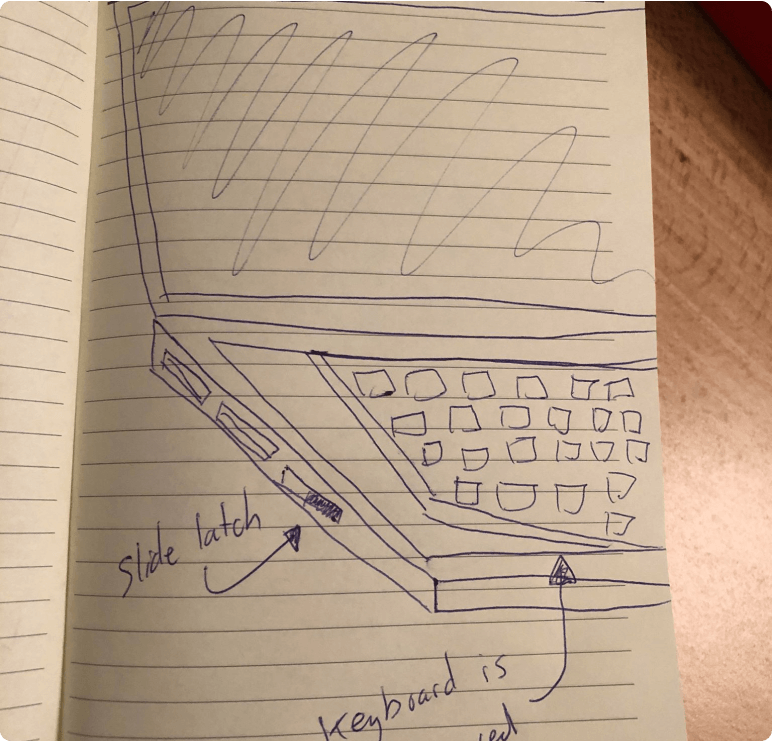 slide latch
Keyboard is